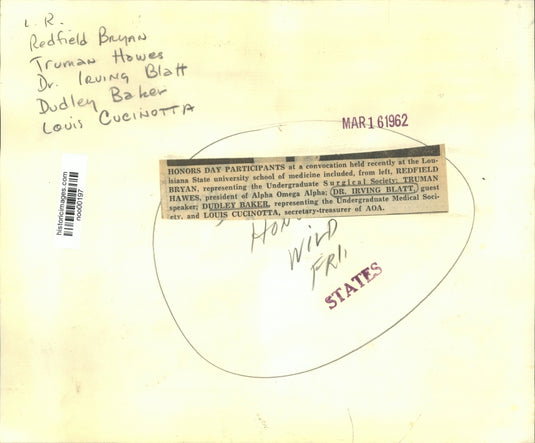 L. R.
Redfield Bryan
Truman Hawes
Dr. Irving Blatt
Dudley Baker
Louis Cucinotta
MAR 16 1962
HONORS DAY PARTICIPANTS at a convocation held recently at the Lou-
isiana State university school of medicine included, from left, REDFIELD
BRYAN, representing the Undergraduate Surgical Society; TRUMAN
HAWES, president of Alpha Omega Alpha; DR. IRVING BLATT, guest
speaker; DUDLEY BAKER, representing the Undergraduate Medical Soci-
ety, and LOUIS CUCINOTTA, secretary-treasurer of AOA.
historicimages.com
noo00197
WILD
FRI.
STATES